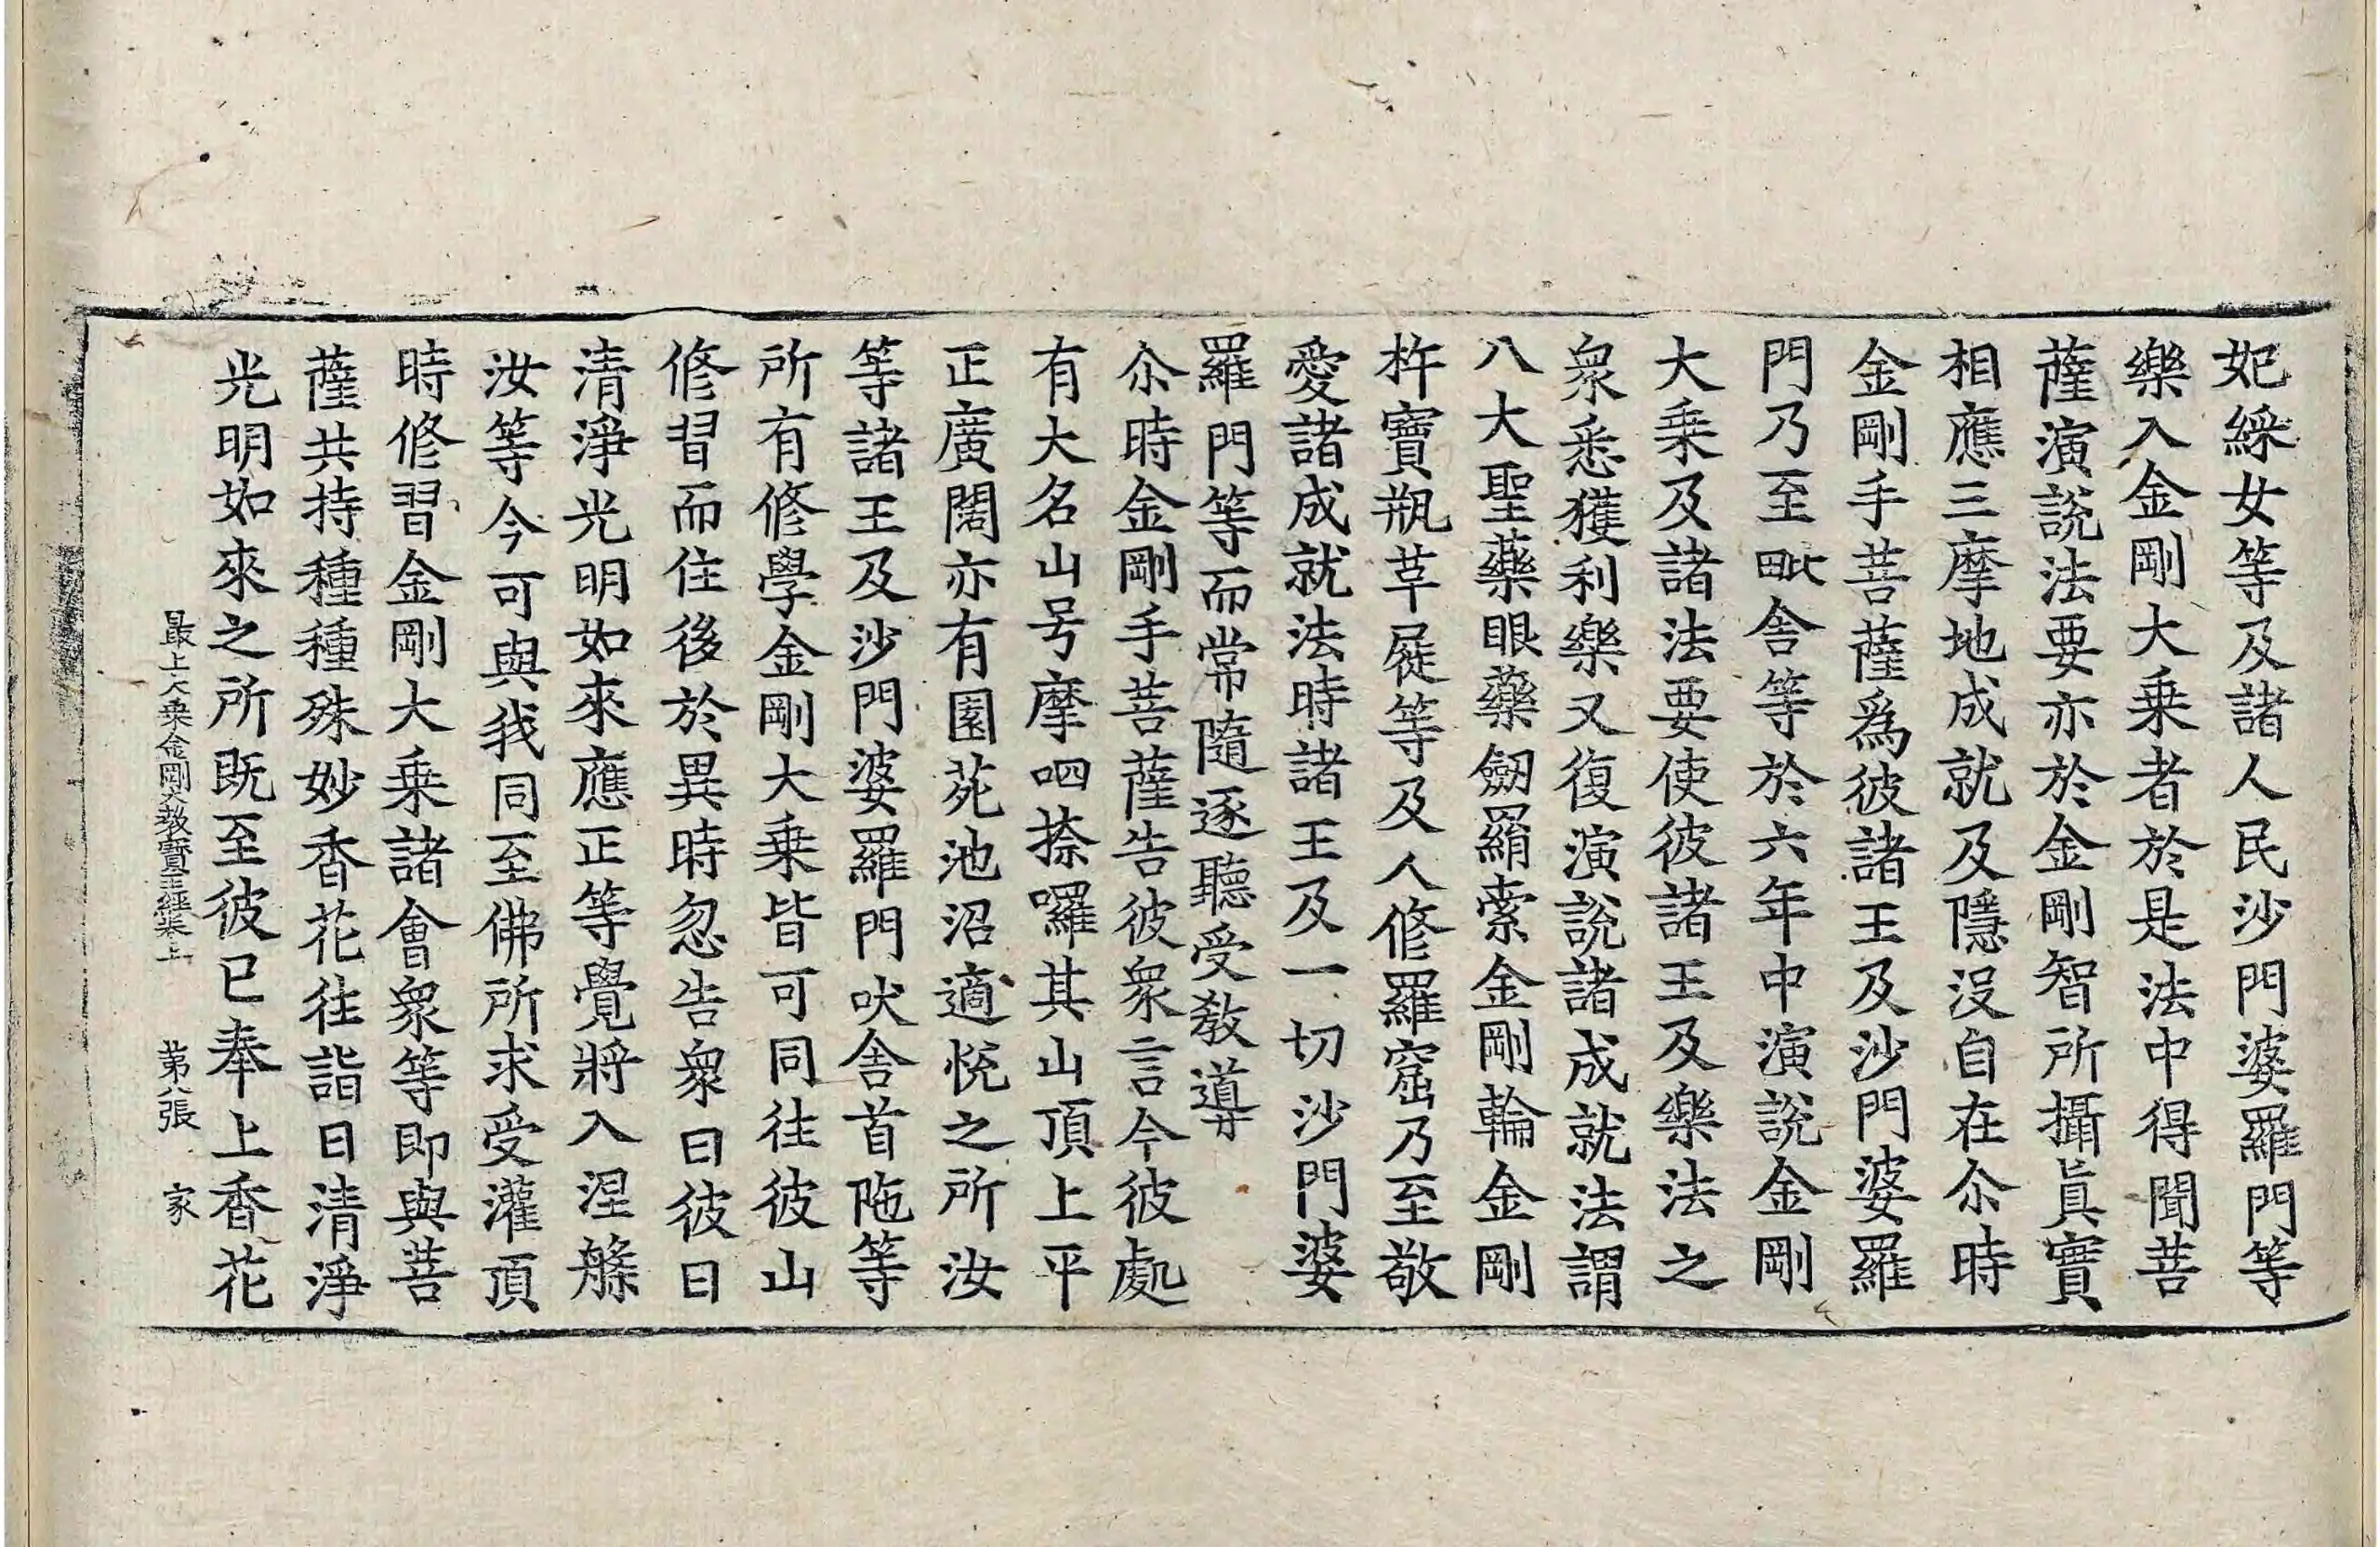 妃綵女等及諸人民沙門婆羅門等
樂入金剛大乗者於是法中得聞菩
薩演說法要亦於金剛智所攝眞實
相應三摩地成就及隱沒自在尒時
金剛手菩薩爲彼諸王及沙門婆羅
門乃至毗舍等於六年中演說金剛
大乗及諸法要使彼諸王及樂法之
衆悉獲利樂又復演說諸成就法謂
八大聖藥眼藥劒羂索金剛輪金剛
杵寶瓶革屣等及人修羅窟乃至敬
愛諸成就法時諸王及一切沙門婆
羅門等而常隨逐聽受教導
尒時金剛手菩薩告彼衆言今彼處
有大名山号摩呬捺囉其山頂上平
正廣闊亦有園苑池沼適悅之所汝
等諸王及沙門婆羅門吠舍首陁等
所有修學金剛大乗皆可同往彼山
修習而住後於異時忽告衆曰彼日
清淨光明如來應正等覺將入涅槃
汝等今可與我同至佛所求受灌頂
時修習金剛大乗諸會衆等即與菩
薩共持種種殊妙香花往詣日清淨
光明如來之所既至彼已奉上香花
最上大乗金剛大教寶王經卷上 第八張 家